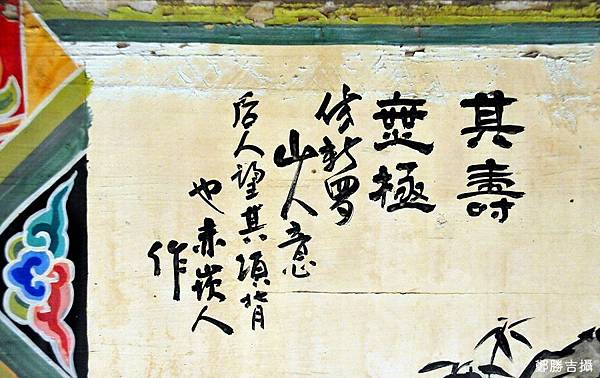 其壽
無極
仿新羅
山人意
后人望其項背
也赤崁人
作
鄭勝吉攝